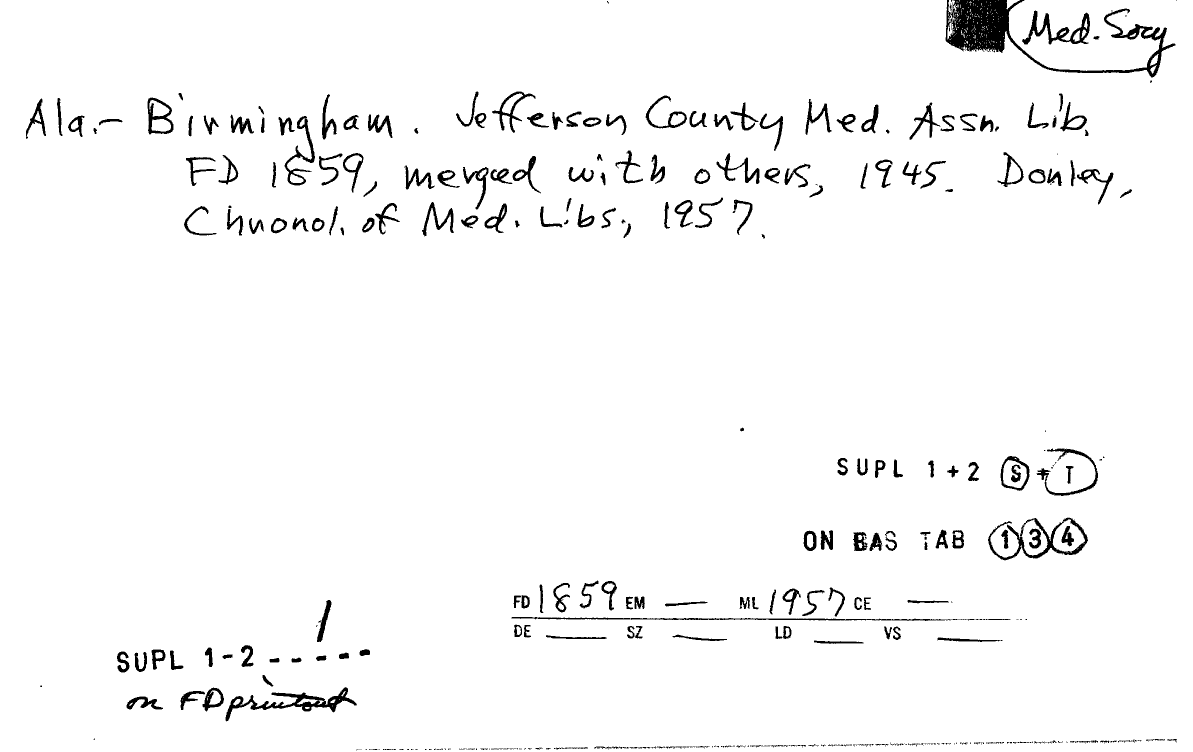 Med. Socy
Ala.- Birmingham. Jefferson County Med. Assn. Lib.
FD 1859, merged with others, 1945. Donley,
Chronol. of Med. Libs., 1957.
SUPL 1+2 S+T
ON BAS TAB 1 3 4
FD 1859 EM — ML 1957 CE —
DE ___ SZ ___ LD ___ VS ___
1
SUPL 1-2 -----
on FD printout